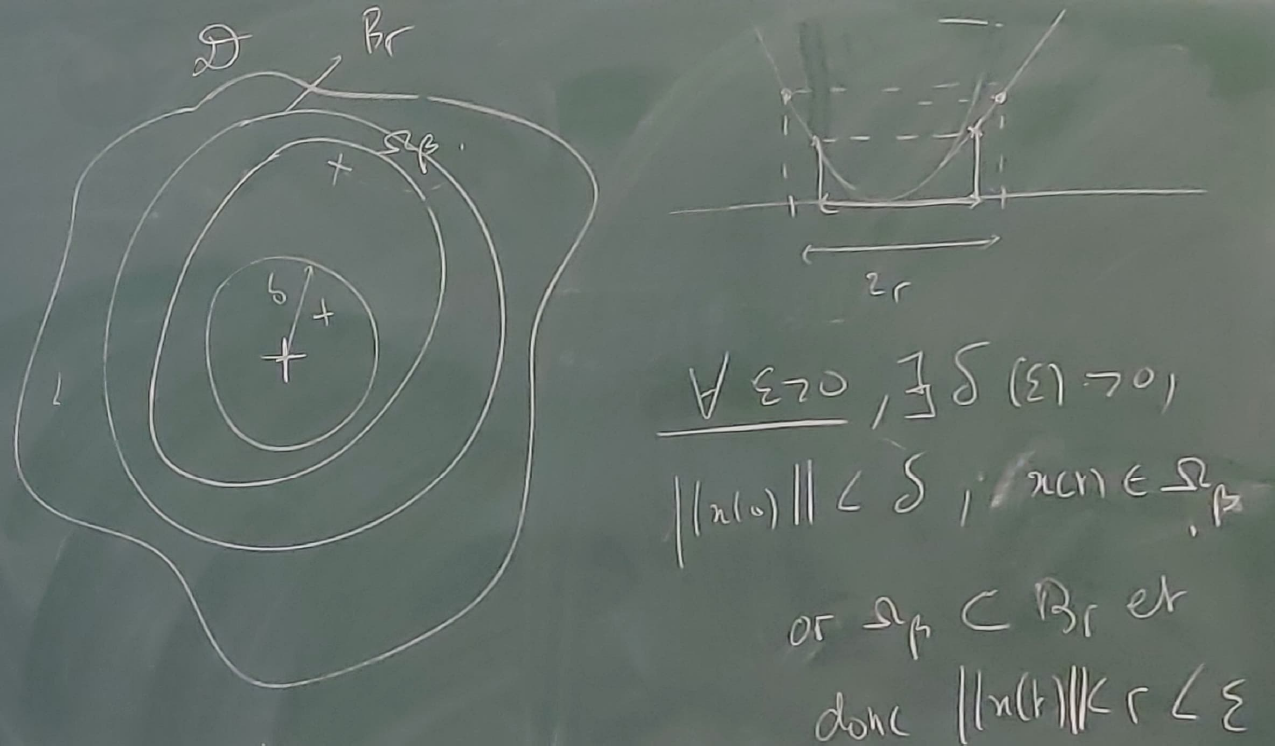 𝒟
Br
Ωβ
δ
2r
∀ ε>0, ∃ δ(ε) >0,
||x(0)|| < δ, x(t) ∈ Ωβ
or Ωβ ⊂ Br et
donc ||x(t)|| < r < ε